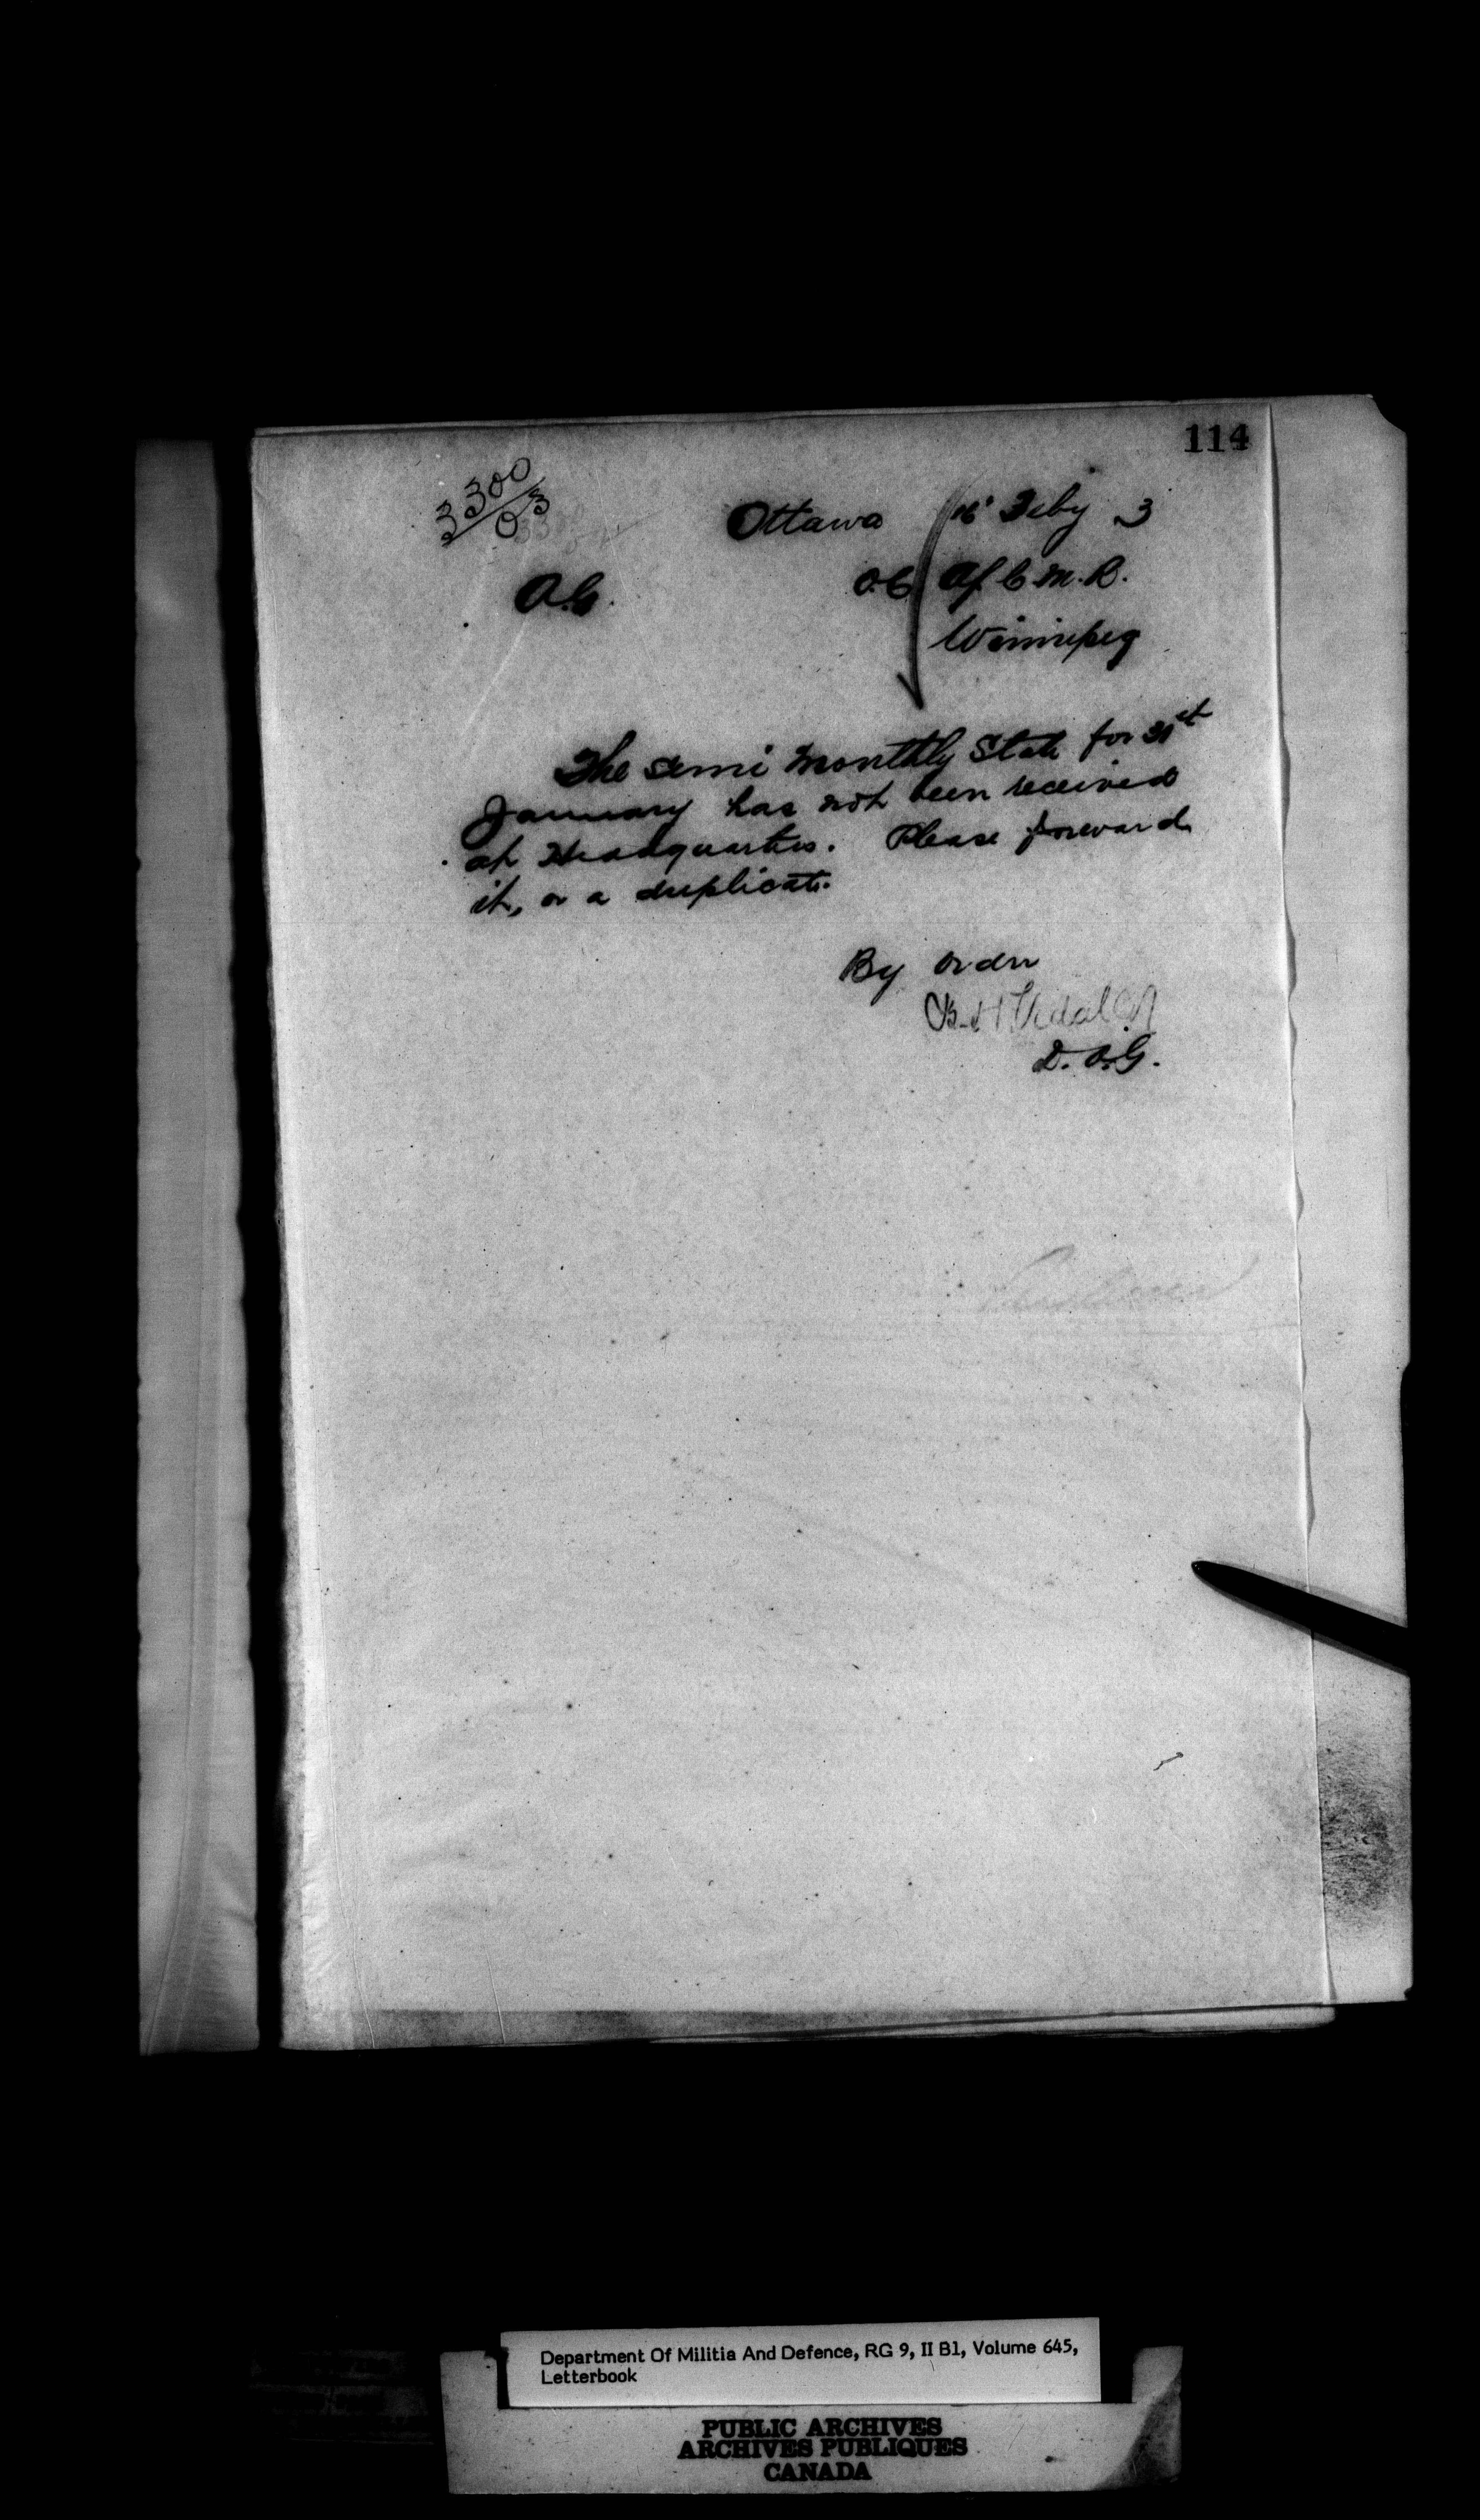 114
3300
03
Ottawa 16' Feby 3
A.G. O.C. Of C.M.R.
Winnipeg
The semi monthly State for 31st
January has not been received
at Headquarters. Please forward
it, or a duplicate.
By order
B.H. Vidal Col
D.A.G.
Department Of Militia And Defence, RG 9, II B1, Volume 645,
Letterbook
PUBLIC ARCHIVES
ARCHIVES PUBLIQUES
CANADA